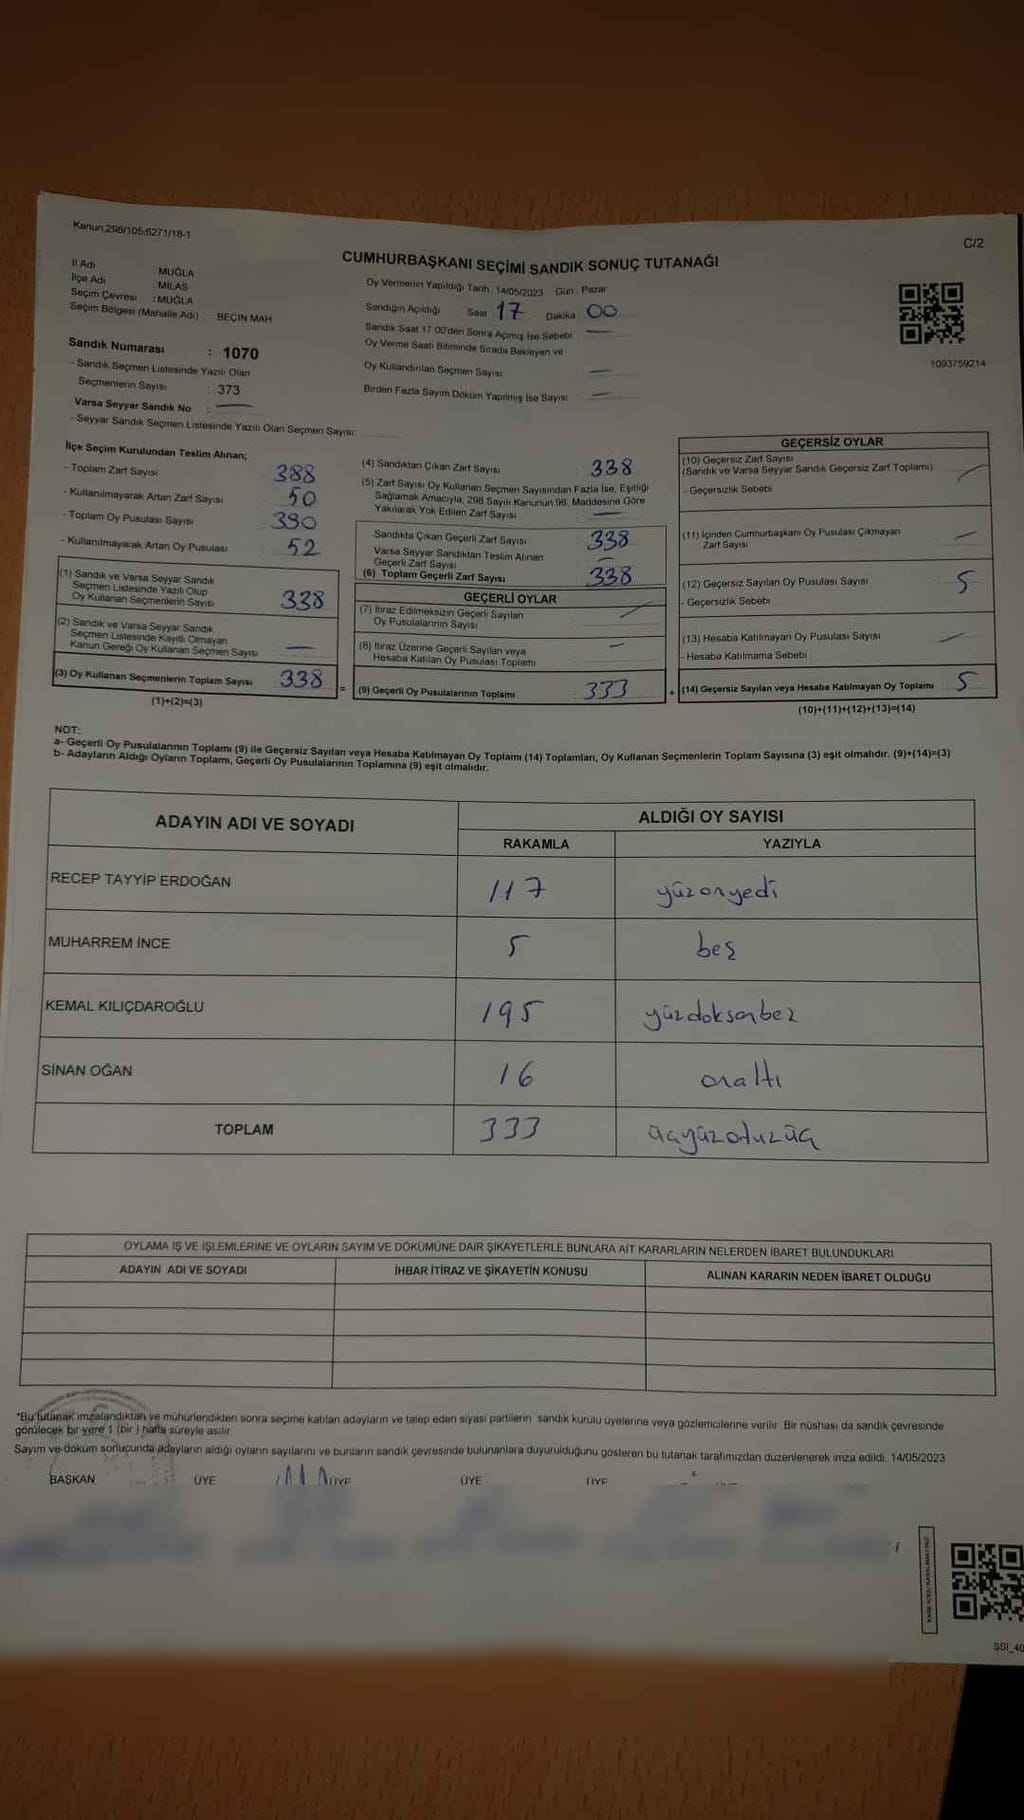 Kanun;298/105;6271/18-1
C/2
CUMHURBAŞKANI SEÇİMİ SANDIK SONUÇ TUTANAĞI
İl Adı : MUĞLA
İlçe Adı : MİLAS
Seçim Çevresi : MUĞLA
Seçim Bölgesi (Mahalle Adı) BEÇİN MAH
Sandık Numarası : 1070
- Sandık Seçmen Listesinde Yazılı Olan
Seçmenlerin Sayısı : 373
Varsa Seyyar Sandık No :
- Seyyar Sandık Seçmen Listesinde Yazılı Olan Seçmen Sayısı:
Oy Vermenin Yapıldığı Tarih : 14/05/2023 Gün : Pazar
Sandığın Açıldığı Saat 17 Dakika 00
Sandık Saat 17:00'den Sonra Açılmış İse Sebebi
Oy Verme Saati Bitiminde Sırada Bekleyen ve
Oy Kullandırılan Seçmen Sayısı
Birden Fazla Sayım Döküm Yapılmış İse Sayısı
1093759214
İlçe Seçim Kurulundan Teslim Alınan;
- Toplam Zarf Sayısı : 388
- Kullanılmayarak Artan Zarf Sayısı : 50
- Toplam Oy Pusulası Sayısı : 390
- Kullanılmayarak Artan Oy Pusulası : 52
(1) Sandık ve Varsa Seyyar Sandık
Seçmen Listesinde Yazılı Olup
Oy Kullanan Seçmenlerin Sayısı : 338
(2) Sandık ve Varsa Seyyar Sandık
Seçmen Listesinde Kayıtlı Olmayan
Kanun Gereği Oy Kullanan Seçmen Sayısı
(3) Oy Kullanan Seçmenlerin Toplam Sayısı : 338
(1)+(2)=(3)
(4) Sandıktan Çıkan Zarf Sayısı : 338
(5) Zarf Sayısı Oy Kullanan Seçmen Sayısından Fazla İse, Eşitliği
Sağlamak Amacıyla, 298 Sayılı Kanunun 98. Maddesine Göre
Yakılarak Yok Edilen Zarf Sayısı
Sandıkta Çıkan Geçerli Zarf Sayısı : 338
Varsa Seyyar Sandıktan Teslim Alınan
Geçerli Zarf Sayısı
(6) Toplam Geçerli Zarf Sayısı : 338
GEÇERLİ OYLAR
(7) İtiraz Edilmeksizin Geçerli Sayılan
Oy Pusulalarının Sayısı
(8) İtiraz Üzerine Geçerli Sayılan veya
Hesaba Katılan Oy Pusulası Toplamı
= (9) Geçerli Oy Pusulalarının Toplamı 333
GEÇERSİZ OYLAR
(10) Geçersiz Zarf Sayısı
(Sandık ve Varsa Seyyar Sandık Geçersiz Zarf Toplamı)
- Geçersizlik Sebebi
(11) İçinden Cumhurbaşkanı Oy Pusulası Çıkmayan
Zarf Sayısı
(12) Geçersiz Sayılan Oy Pusulası Sayısı : 5
- Geçersizlik Sebebi
(13) Hesaba Katılmayan Oy Pusulası Sayısı
- Hesaba Katılmama Sebebi :
+ (14) Geçersiz Sayılan veya Hesaba Katılmayan Oy Toplamı 5
(10)+(11)+(12)+(13)=(14)
NOT:
a- Geçerli Oy Pusulalarının Toplamı (9) ile Geçersiz Sayılan veya Hesaba Katılmayan Oy Toplamı (14) Toplamları, Oy Kullanan Seçmenlerin Toplam Sayısına (3) eşit olmalıdır. (9)+(14)=(3)
b- Adayların Aldığı Oyların Toplamı, Geçerli Oy Pusulalarının Toplamına (9) eşit olmalıdır.
ADAYIN ADI VE SOYADI
ALDIĞI OY SAYISI
RAKAMLA YAZIYLA
RECEP TAYYİP ERDOĞAN 117 yüzonyedi
MUHARREM İNCE 5 beş
KEMAL KILIÇDAROĞLU 195 yüzdoksanbeş
SİNAN OĞAN 16 onaltı
TOPLAM 333 üçyüzotuzüç
OYLAMA İŞ VE İŞLEMLERİNE VE OYLARIN SAYIM VE DÖKÜMÜNE DAİR ŞİKAYETLERLE BUNLARA AİT KARARLARIN NELERDEN İBARET BULUNDUKLARI
ADAYIN ADI VE SOYADI İHBAR İTİRAZ VE ŞİKAYETİN KONUSU ALINAN KARARIN NEDEN İBARET OLDUĞU
*Bu tutanak imzalandıktan ve mühürlendikten sonra seçime katılan adayların ve talep eden siyasi partilerin sandık kurulu üyelerine veya gözlemcilerine verilir. Bir nüshası da sandık çevresinde
görülecek bir yere 1 (bir ) hafta süreyle asılır.
Sayım ve döküm sonucunda adayların aldığı oyların sayılarını ve bunların sandık çevresinde bulunanlara duyurulduğunu gösteren bu tutanak tarafımızdan düzenlenerek imza edildi. 14/05/2023
BAŞKAN ÜYE ÜYE ÜYE ÜYE
SSI_40